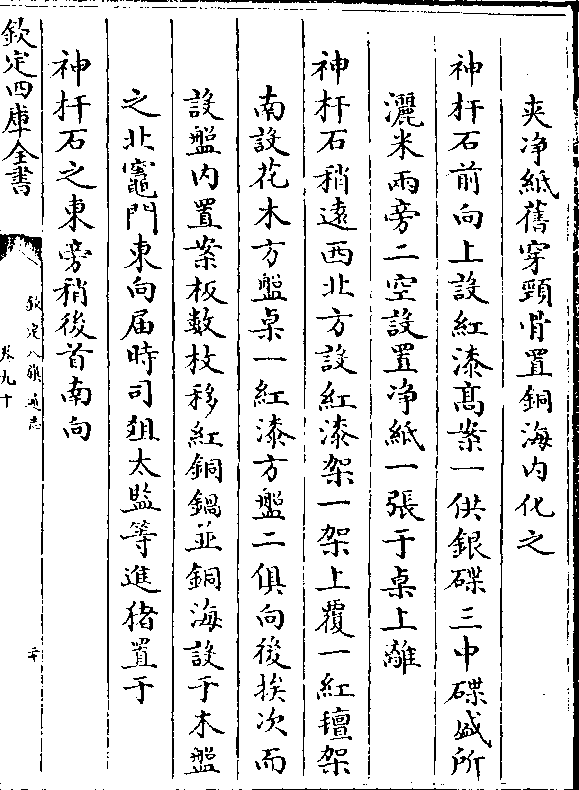 夾净紙舊穿頸骨置銅海内化之
神杆石前向上設紅漆髙案一供銀碟三中碟盛所
灑米兩旁二空設置净紙一張于桌上離
神杆石稍逺西北方設紅漆架一架上覆一紅氊架
南設花木方盤桌一紅漆方盤二俱向後挨次而
設盤内置案板數枚移紅銅鍋並銅海設于木盤
之北竈門東向届時司俎太監等進猪置于
神杆石之東旁稍後首南向
欽定四庫全書
欽定八旗通志
卷九十